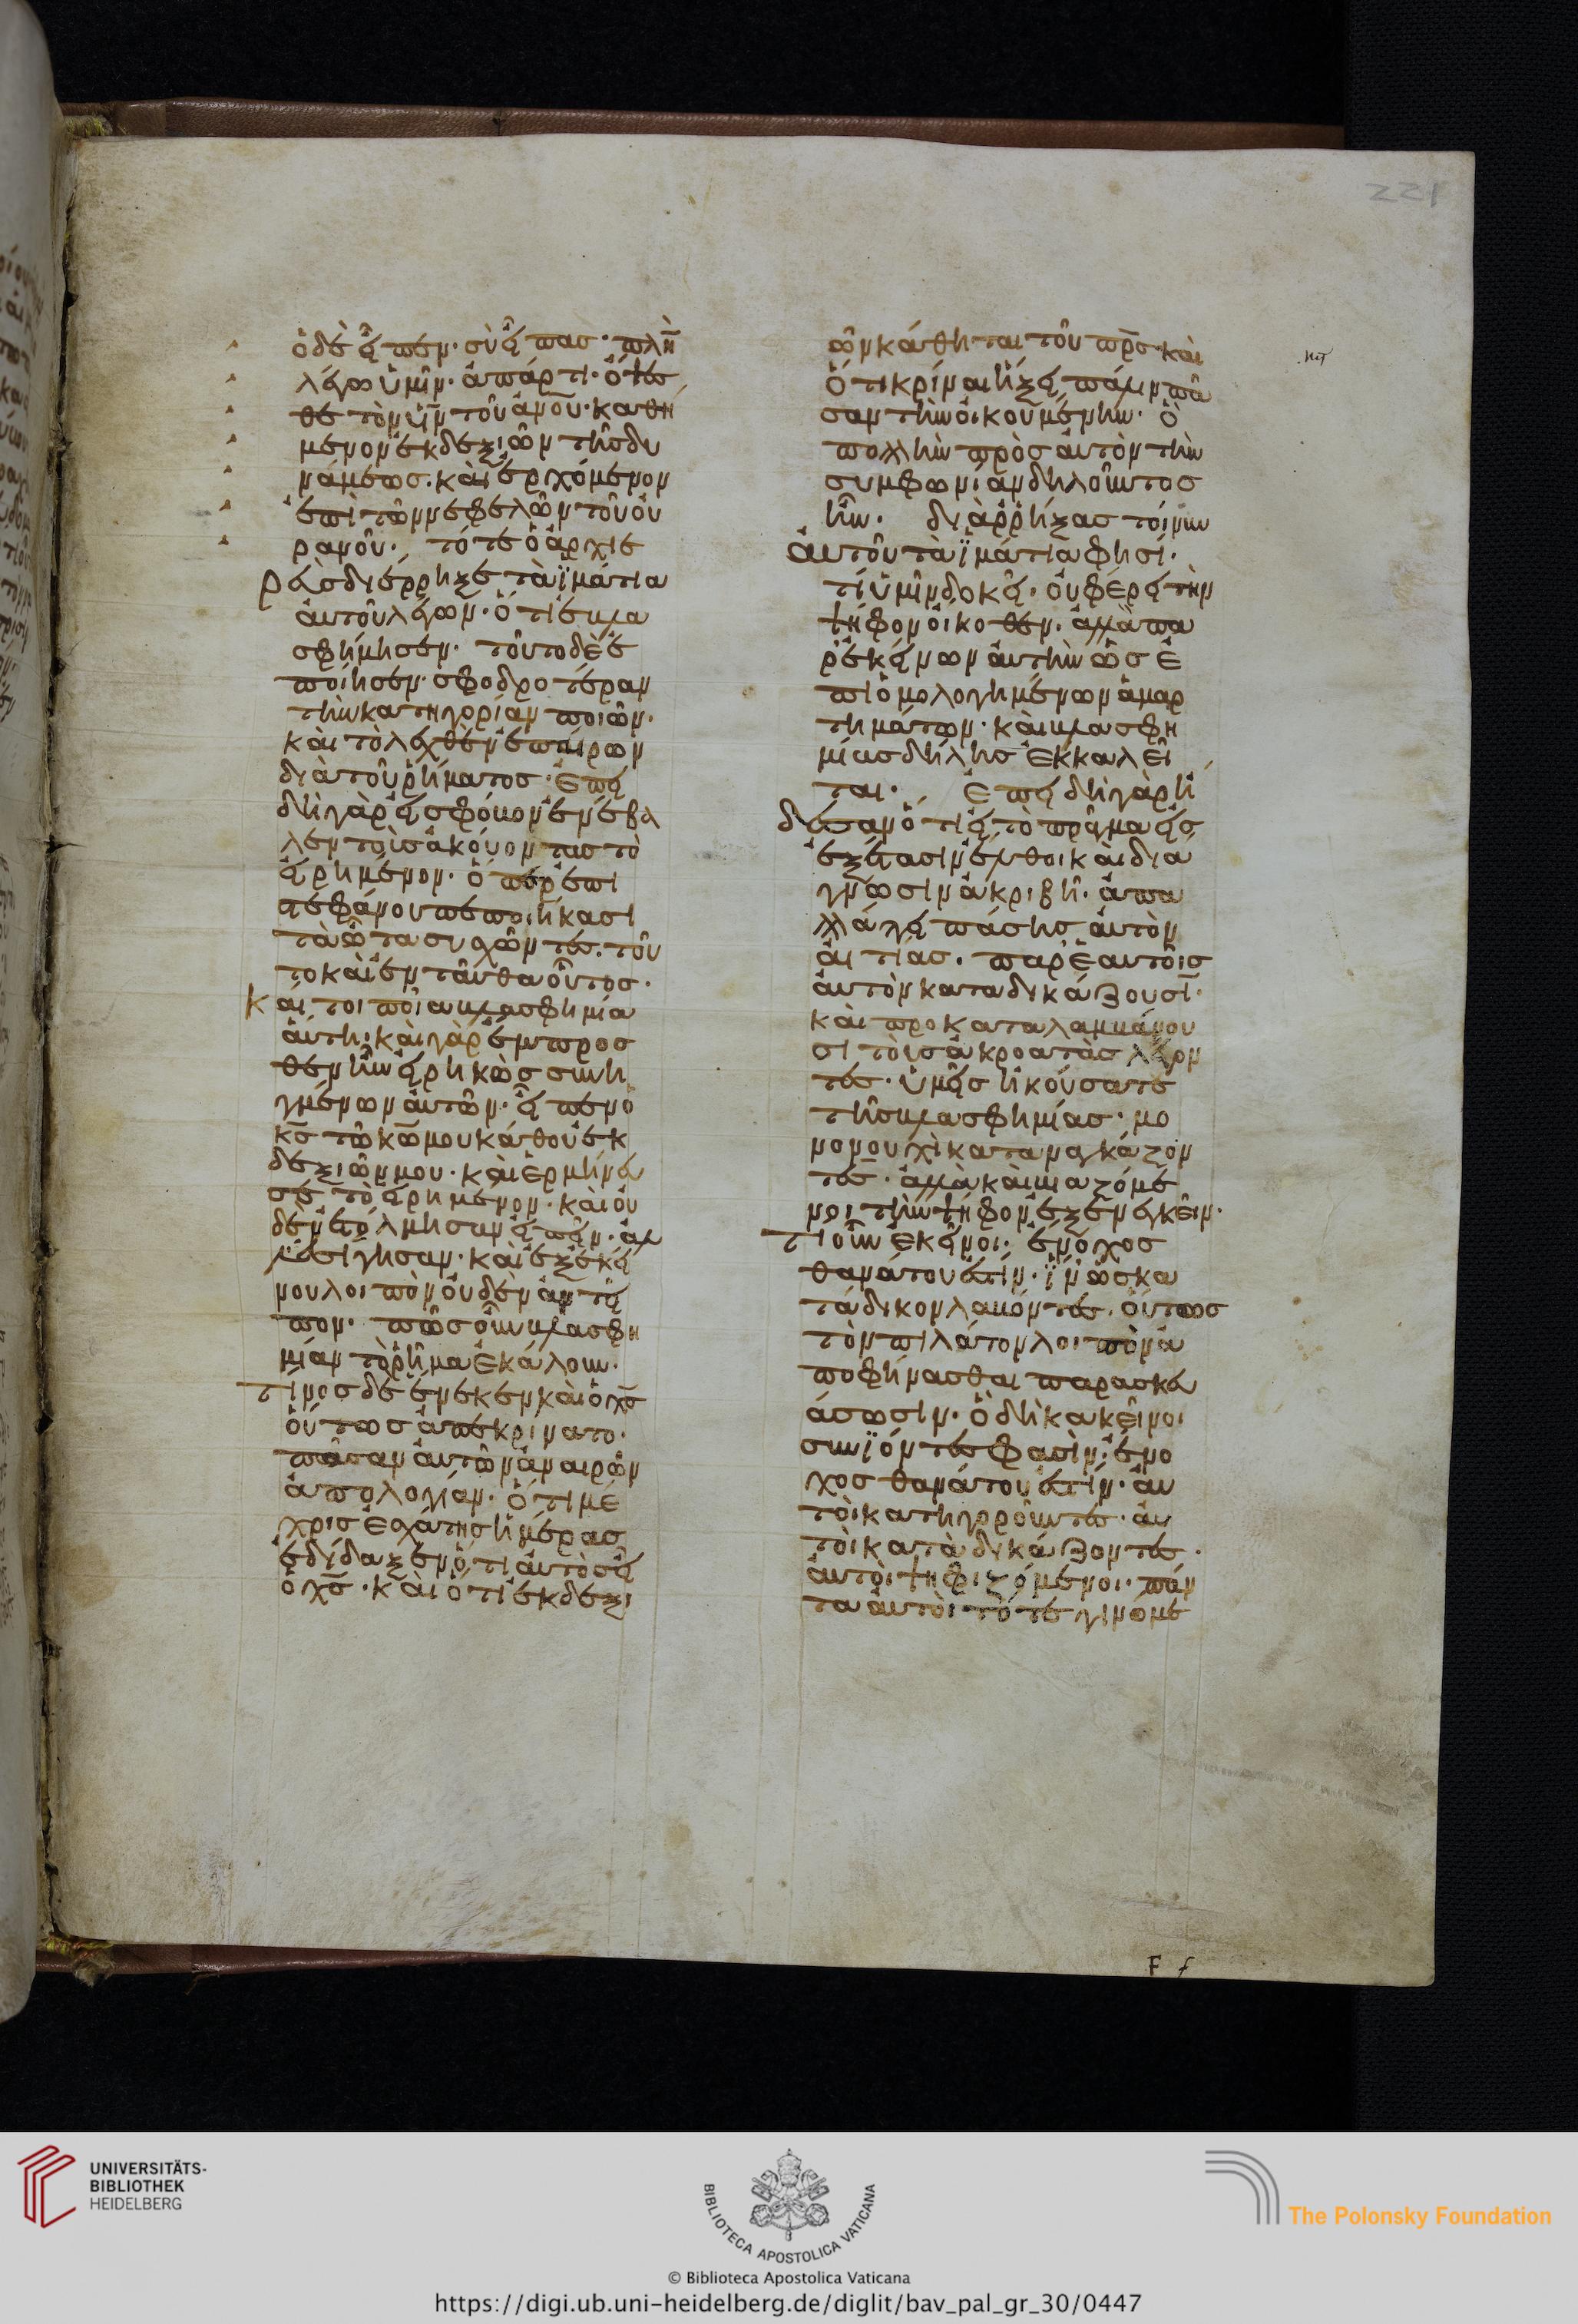 221
ὁ δὲ εἶπεν· σὺ εἶπας· πλὴν
λέγω ὑμῖν· ἀπάρτι· ὄψεσ
θε τὸν ὑιν τοῦ ανου· καθή
μενον ἐκ δεξιῶν τῆς δυ
νάμεως· καὶ ἐρχόμενον
ἐπὶ τῶν νεφελῶν τοῦ οὐ
ρανοῦ· τότε ὁ ἀρχιε
ρεὺς διέρρηξε τὰ ϊμάτια
αὐτοῦ λέγων· ὅτι ἐβλα
σφήμησεν· τοῦτο δὲ ἐ
ποίησεν σφοδροτέραν
τὴν κατηγορίαν ποιῶν·
καὶ τὸ λεχθὲν ἐπαίρων
διὰ τοῦ ῥήματος· ἐπει
δὴ γὰρ εἰς φόβον ἐνέβα
λεν τοὺς ἀκούοντας τὸ
εἰρημένον· ὅπερ ἐπὶ
στεφάνου πεποιήκασι
τὰ ὦτα συνχῶντες· τοῦ
το καὶ ἐνταῦθα οὗτος·
Καί τοι ποία βλασφημία
αὕτη· καὶ γὰρ ἔμπροσ
θεν ἦν εἰρηκὼς συνη
γμένων αὐτῶν· εἶπεν ὁ
κς τῶ κω μου κάθου ἐκ
δεξιῶν μου· καὶ ἑρμήνευ
σε τὸ εἰρημένον· καὶ οὐ
δὲν ἐτόλμησαν εἰπεῖν· ἀλ
λ' ἐσίγησαν· καὶ ἐξ ἐκεί
νου λοιπὸν οὐδὲν ἀντεῖ
πον· πῶς οὖν βλασφη
μίαν τὸ ῥῆμα ἐκάλουν·
Τίνος δὲ ἕνεκεν καὶ ὁ χς
οὕτως ἀπεκρίνατο·
πᾶσαν αὐτῶν ἀναιρῶν
ἀπολογίαν· ὅτι μέ
χρις ἐσχάτης ἡμέρας
ἐδίδαξεν ὅτι αὐτὸς εἶ
ὁ χς· καὶ ὅτι ἐκ δεξι
ῶν κάθηται τοῦ πρς καὶ
ὅτι κρῖναι ἥξει πάλιν πᾶ
σαν τὴν οἰκουμένην· ὃ
πολλὴν πρὸς αὐτὸν τὴν
συμφωνίαν δηλοῦντος
ἦν· διαρρήξας τοίνυν
αὐτοῦ τὰ ϊμάτια φησί·
τί ὑμῖν δοκεῖ· οὐ φέρει τὴν
ψῆφον οἴκοθεν· ἀλλὰ πα
ρ' ἐκείνων αὐτὴν ὡς ἐ
πὶ ὁμολογημένων ἁμαρ
τημάτων· καὶ βλασφη
μίας δήλης ἐκκαλεῖ
ται· Ἐπειδὴ γὰρ ἤ
δεσαν ὅτι εἰ τὸ πρᾶγμα εἰς
ἐξέτασιν ἔλθοι καὶ διά
γνωσιν ἀκριβῆ· ἀπα
λλάγει πάσης αὐτὸν
αἰτίας· παρ' ἑαυτοῖς
αὐτὸν καταδικάζουσι·
καὶ προκαταλαμβάνου
σι τοὺς ἀκροατὰς λέγον
τες· ὑμεῖς ἠκούσατε
τῆς βλασφημίας· μο
νονουχὶ καταναγκάζον
τες· ἀλλὰ καὶ βιαζόμε
νοι τὴν ψῆφον ἐξενεγκεῖν·
Τί οὖν ἐκεῖνοι· ἔνοχος
θανάτου ἐστίν· ἵν' ὡς κα
τάδικον λαβόντες· οὕτως
τὸν πιλάτον λοιπὸν ἀ
ποφήνασθαι παρασκευ
άσωσιν· ὃ δὴ κἀκεῖνοι
συνϊόντες φασὶν· ἔνο
χος θανάτου ἐστίν· αὐ
τοὶ κατηγοροῦντες· αὐ
τοὶ καταδικάζοντες·
αὐτοὶ ψηφιζόμενοι· πάν
τα αὐτοὶ τότε γινόμε
F f
UNIVERSITÄTS-
BIBLIOTHEK
HEIDELBERG
BIBLIOTECA APOSTOLICA VATICANA
The Polonsky Foundation
© Biblioteca Apostolica Vaticana
https://digi.ub.uni-heidelberg.de/diglit/bav_pal_gr_30/0447